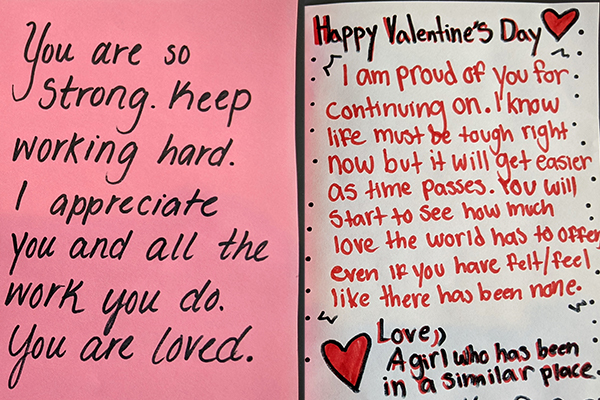 You are so
strong. Keep
working hard.
I appreciate
you and all the
work you do.
You are loved.
Happy Valentine's Day
I am proud of you for
continuing on. I know
life must be tough right
now but it will get easier
as time passes. You will
start to see how much
love the world has to offer
even if you have felt/feel
like there has been none.
Love,
A girl who has been
in a simmilar place.